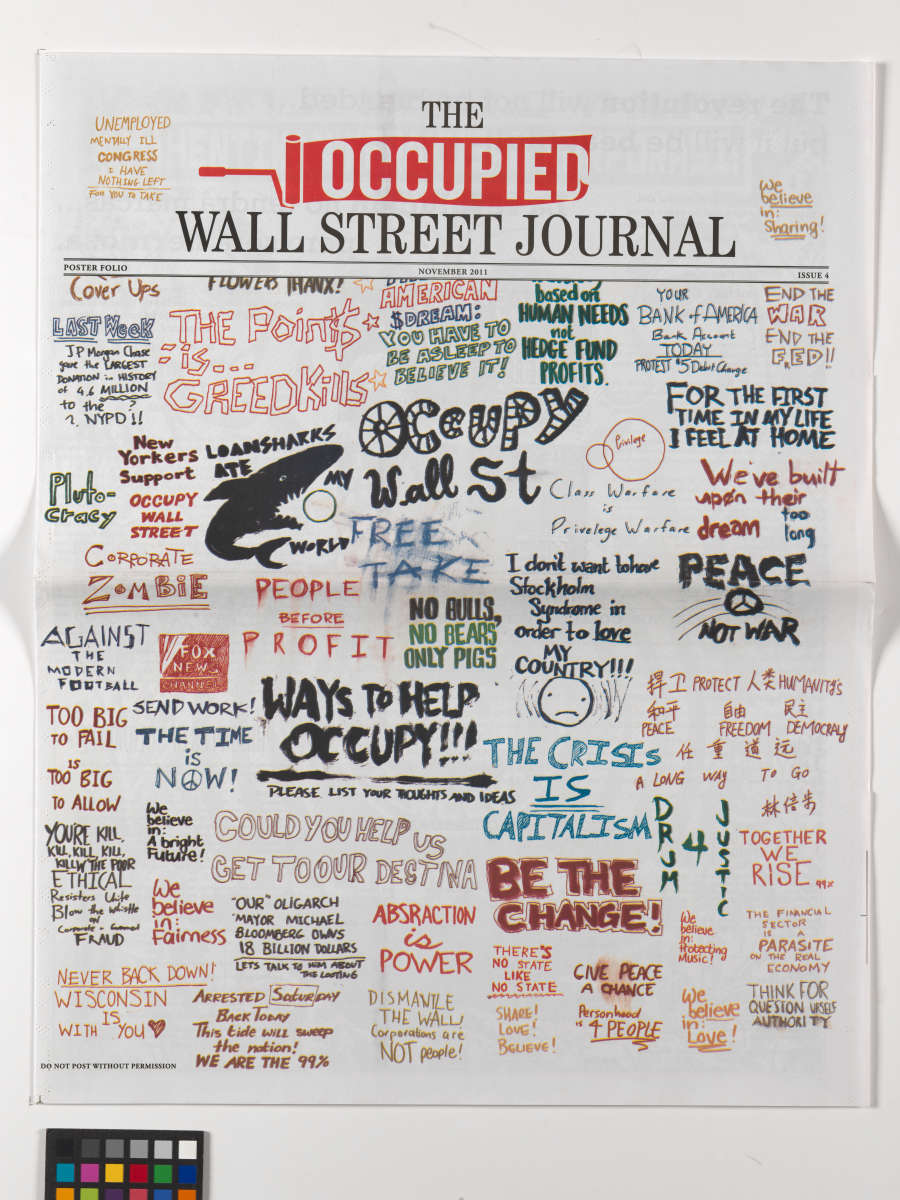 THE
OCCUPIED
WALL STREET JOURNAL
UNEMPLOYED
MENTALLY ILL
CONGRESS
I HAVE
NOTHING LEFT
FOR YOU TO TAKE
We
believe
in:
Sharing!
POSTER FOLIO
NOVEMBER 2011
ISSUE 4
Cover Ups
FLOWERS THANX!
LAST Week
JP Morgan Chase
gave the LARGEST
DONATION in HISTORY
of 4.6 MILLION
to the ?
?. NYPD!!
THE Point$
is...
GREEDKills
AMERICAN
$DREAM:
YOU HAVE TO
BE ASLEEP TO
BELIEVE IT!
based on
HUMAN NEEDS
not
HEDGE FUND
PROFITS.
YOUR
BANK of AMERICA
Bank Account
TODAY
PROTEST $5 Debit Charge
END THE
WAR
END THE
FED!!
OCCUPY
Wall St
Privilege
FOR THE FIRST
TIME IN MY LIFE
I FEEL AT HOME
New
Yorkers
Support
OCCUPY
WALL
STREET
LOANSHARKS
ATE
MY
WORLD
Pluto-
cracy
Class Warfare
is
Privelege Warfare
We've built
upon their
dream
too
long
FREE
TAKE
CORPORATE
ZOMBIE
PEOPLE
BEFORE
PROFIT
NO BULLS,
NO BEARS
ONLY PIGS
I don't want to have
Stockholm
Syndrome in
order to love
MY
COUNTRY!!!
PEACE
NOT WAR
AGAINST
THE
MODERN
FOOTBALL
FOX
NEWS
CHANNEL
WAYS TO HELP
OCCUPY!!!
PLEASE LIST YOUR THOUGHTS AND IDEAS
捍卫 PROTECT 人类 HUMANITY'S
和平 自由 民主
PEACE FREEDOM DEMOCRALY
任重道远
A LONG WAY TO GO
TOO BIG
TO FAIL
IS
TOO BIG
TO ALLOW
SEND WORK!
THE TIME
is
NOW!
THE CRISIS
IS
CAPITALISM
DRUM
4
JUSTIC
TOGETHER
WE
RISE 99%
YOU'RE KILL
KILL KILL KILL,
KILLIN' THE POOR
We
believe
in:
A bright
Future!
COULD YOU HELP US
GET TO OUR DESTINA
BE THE
CHANGE!
ETHICAL
Resisters Unite
Blow the Whistle
on
FRAUD
We
believe
in:
Fairness
"OUR" OLIGARCH
MAYOR MICHAEL
BLOOMBERG OWNS
18 BILLION DOLLARS
LETS TALK TO HIM ABOUT
THE LOOTING
ABSRACTION
is
POWER
We
believe
in:
Protecting
Music!
THE FINANCIAL
SECTOR
IS A
PARASITE
ON THE REAL
ECONOMY
NEVER BACK DOWN!
WISCONSIN
IS
WITH YOU
ARRESTED SATURDAY
BACK TODAY
This tide will sweep
the nation!
WE ARE THE 99%
DISMANTLE
THE WALL,
Corporations are
NOT people!
THERE'S
NO STATE
LIKE
NO STATE
SHARE!
LOVE!
BELIEVE!
GIVE PEACE
A CHANCE
Personhood
is 4 PEOPLE
We
believe
in:
Love!
THINK FOR
QUESION URSELF
AUTHORITY
DO NOT POST WITHOUT PERMISSION